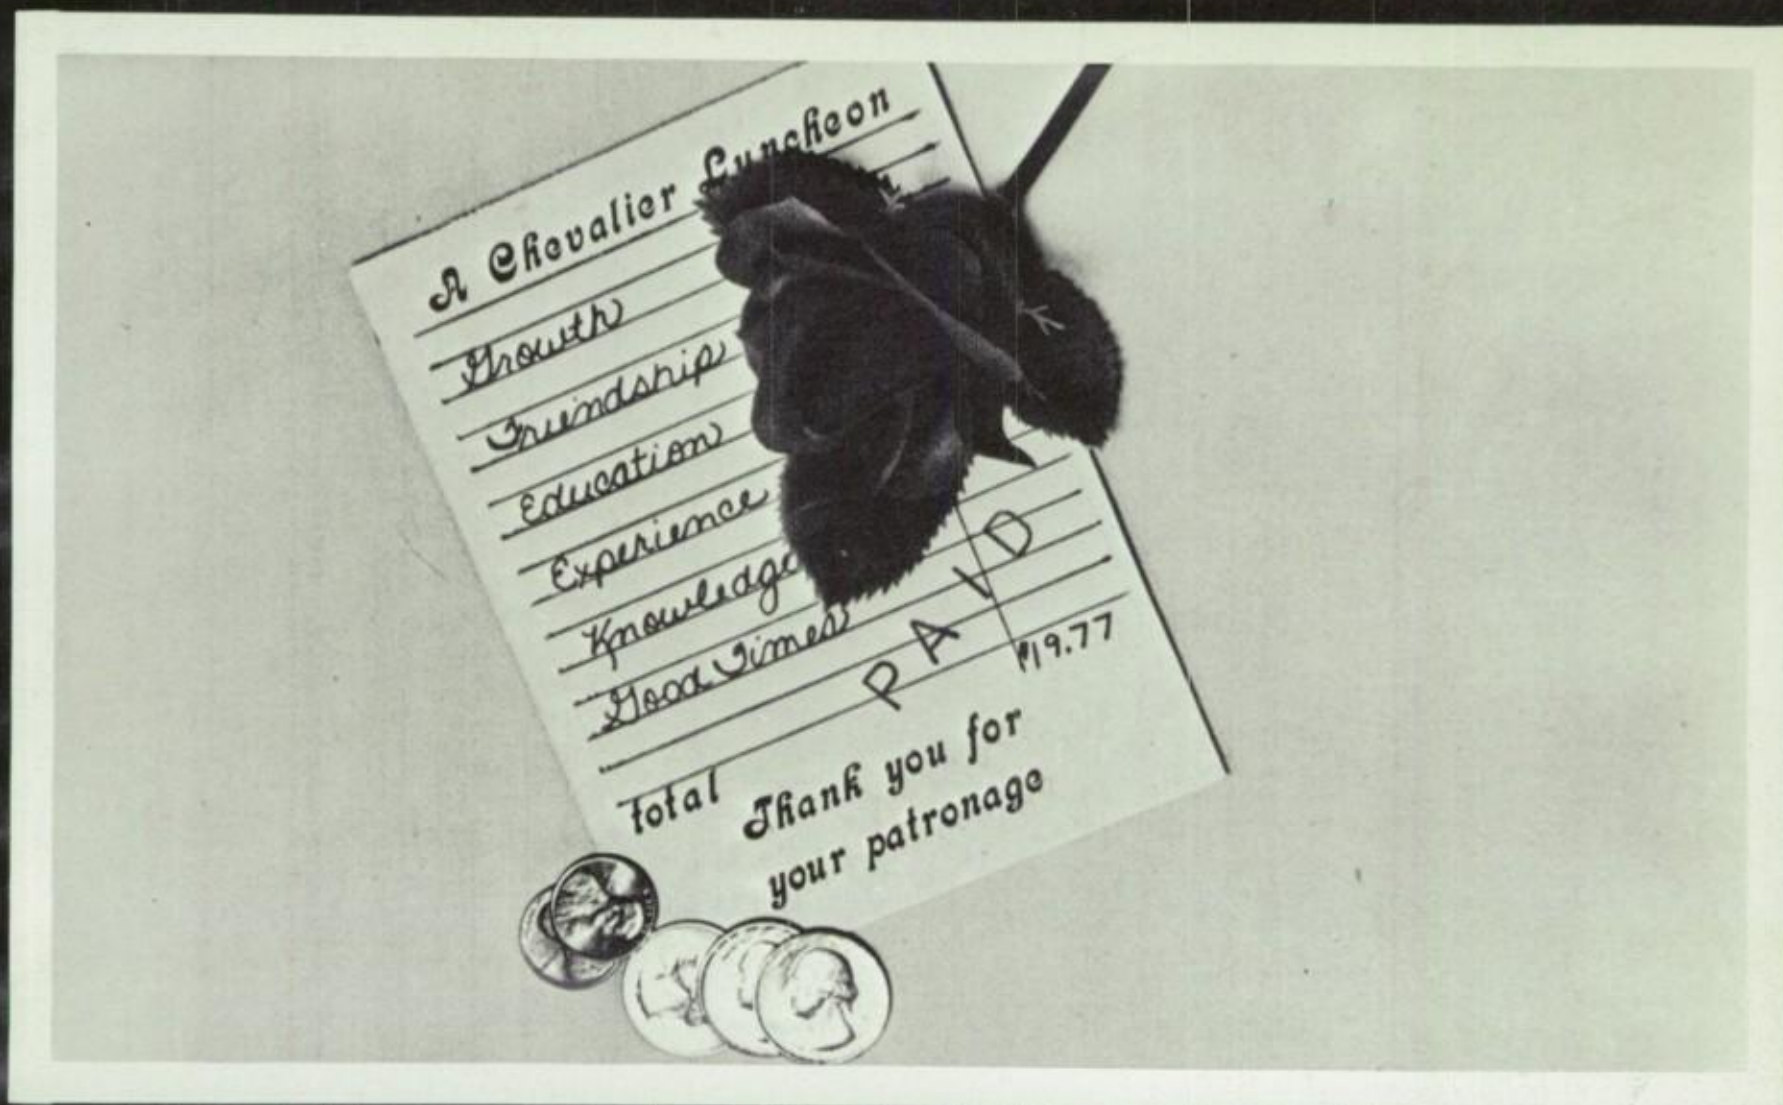 A Chevalier Luncheon
Growth
Friendship
Education
Experience
Knowledge
Good Times
PAID
total $19.77
Thank you for
your patronage